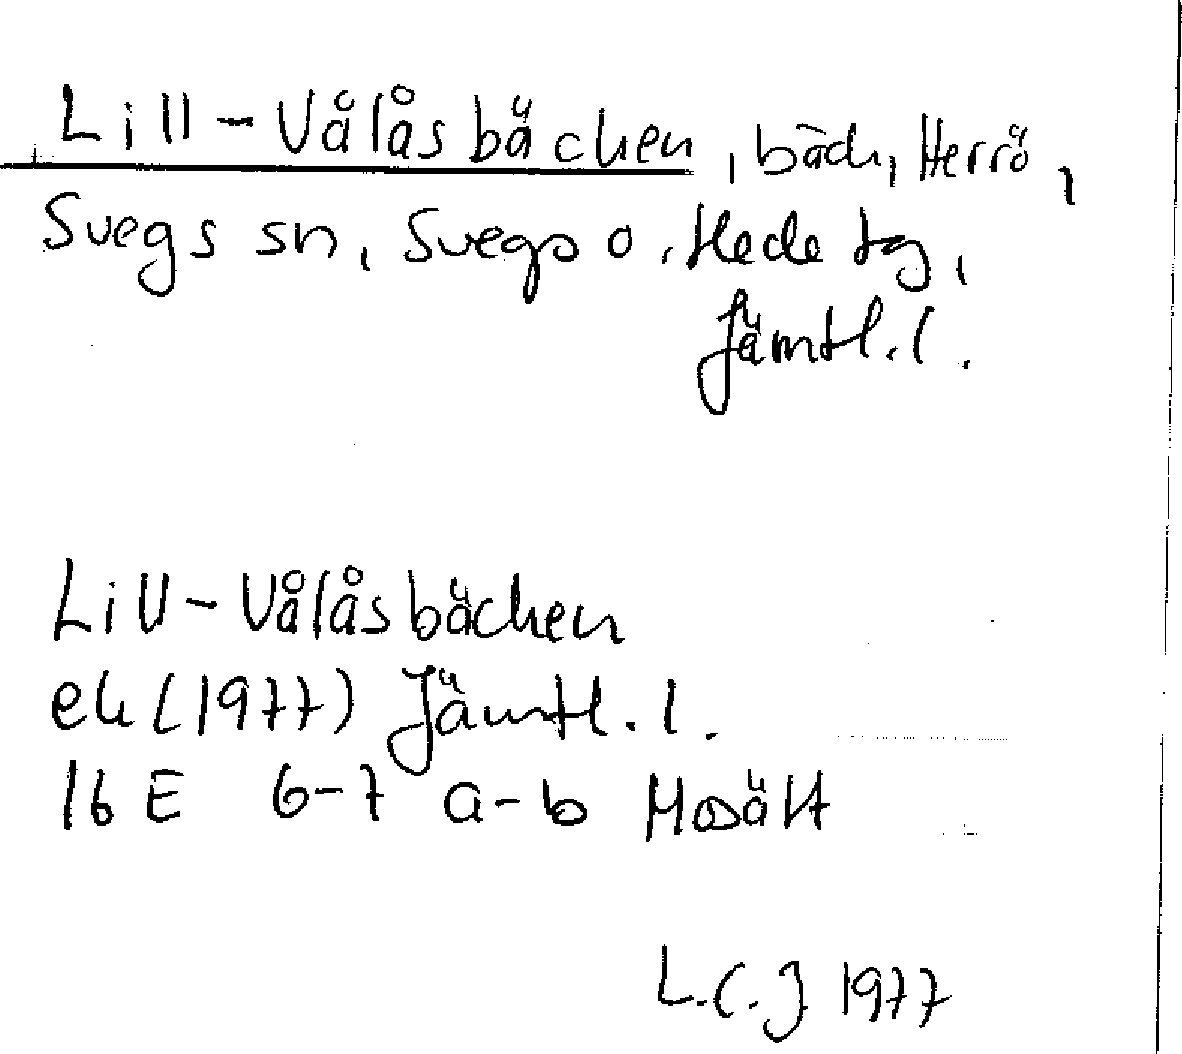 Lill-Vålåsbäcken, bäck, Herrö,
Svegs sn, Svegs o. Hede tg,
Jämtl. l.
Lill-Vålåsbäcken
ek (1977) Jämtl. l.
16 E 6-7 a-b Mosätt
L.C.J 1977